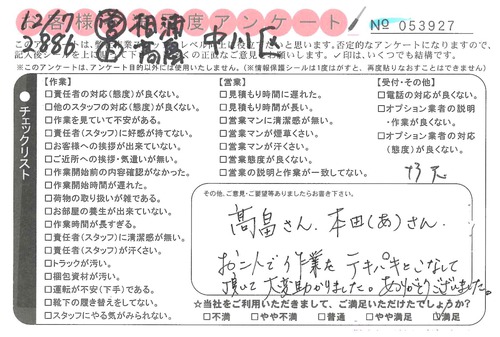 12/7 相浦
3886 高畠 中川区
お客様満足度アンケート
No 053927
※このアンケートは、アンケート目的以外には使用いたしません。(※情報保護シールは1度はがすと、再度貼りなおすことはできません)
チェックリスト
【作業】
□責任者の対応(態度)が良くない。
□他のスタッフの対応(態度)が良くない。
□作業を見ていて不安がある。
□責任者(スタッフ)に好感が持てない。
□お客様への挨拶が出来ていない。
□ご近所への挨拶・気遣いが無い。
□作業開始前の内容確認がなかった。
□作業開始時間が遅れた。
□荷物の取り扱いが雑である。
□お部屋の養生が出来ていない。
□作業時間が長すぎる。
□責任者(スタッフ)に清潔感が無い。
□責任者(スタッフ)が汗くさい。
□トラックが汚い。
□梱包資材が汚い。
□運転が不安(下手)である。
□靴下の履き替えをしてない。
□スタッフにやる気がみられない。
【営業】
□見積もり時間に遅れた。
□見積もり時間が長い。
□営業マンに清潔感が無い。
□営業マンが煙草くさい。
□営業マンが汗くさい。
□営業態度が良くない。
□営業の説明と作業が一致してない。
【受付・その他】
□電話の対応が良くない。
□オプション業者の説明
・作業が良くない。
□オプション業者の対応
(態度)が良くない。
その他、ご意見・ご要望等ありましたらお書き下さい。
高畠さん、本田(あ)さん、
お二人で作業をテキパキとこなして
頂いて大変助かりました。ありがとうございました。
☆当社をご利用いただきまして、ご満足いただけたでしょうか?
□不満 □やや不満 □普通 □やや満足 ☑満足